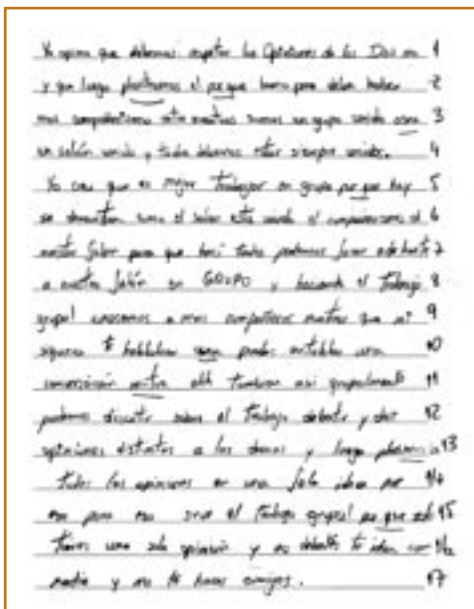 Yo opino que debemos respetar las Opiniones de los Dos en 1
y que luego planteamos el por que bueno pero deben haber 2
mas compañerismo entre nosotros somos un grupo unido como 3
un salón unido y todos debemos estar siempre unidos. 4
Yo creo que es mejor trabajar en grupo por que hay 5
se demuestra como el salon esta unido el compañerismo de 6
nuestro Salon para que hasi todos podemos sacar adelante 7
a nuestro Salón en GRUPO y haciendo el trabajo 8
grupal conocemos a mas compañeros mientras que ni 9
siquiera te hablabas como puedes entablar una 10
conversación entre ellos tambien asi grupalmente 11
podemos discutir sobre el trabajo debatir y dar 12
opiniones distintas a los demas y luego 13
todas las opiniones en una sola idea por 14
eso para mi sirve el trabajo grupal por que solo 15
tienes una sola opinión y no debates tu idea con 16
nadie y no te haces amigos. 17